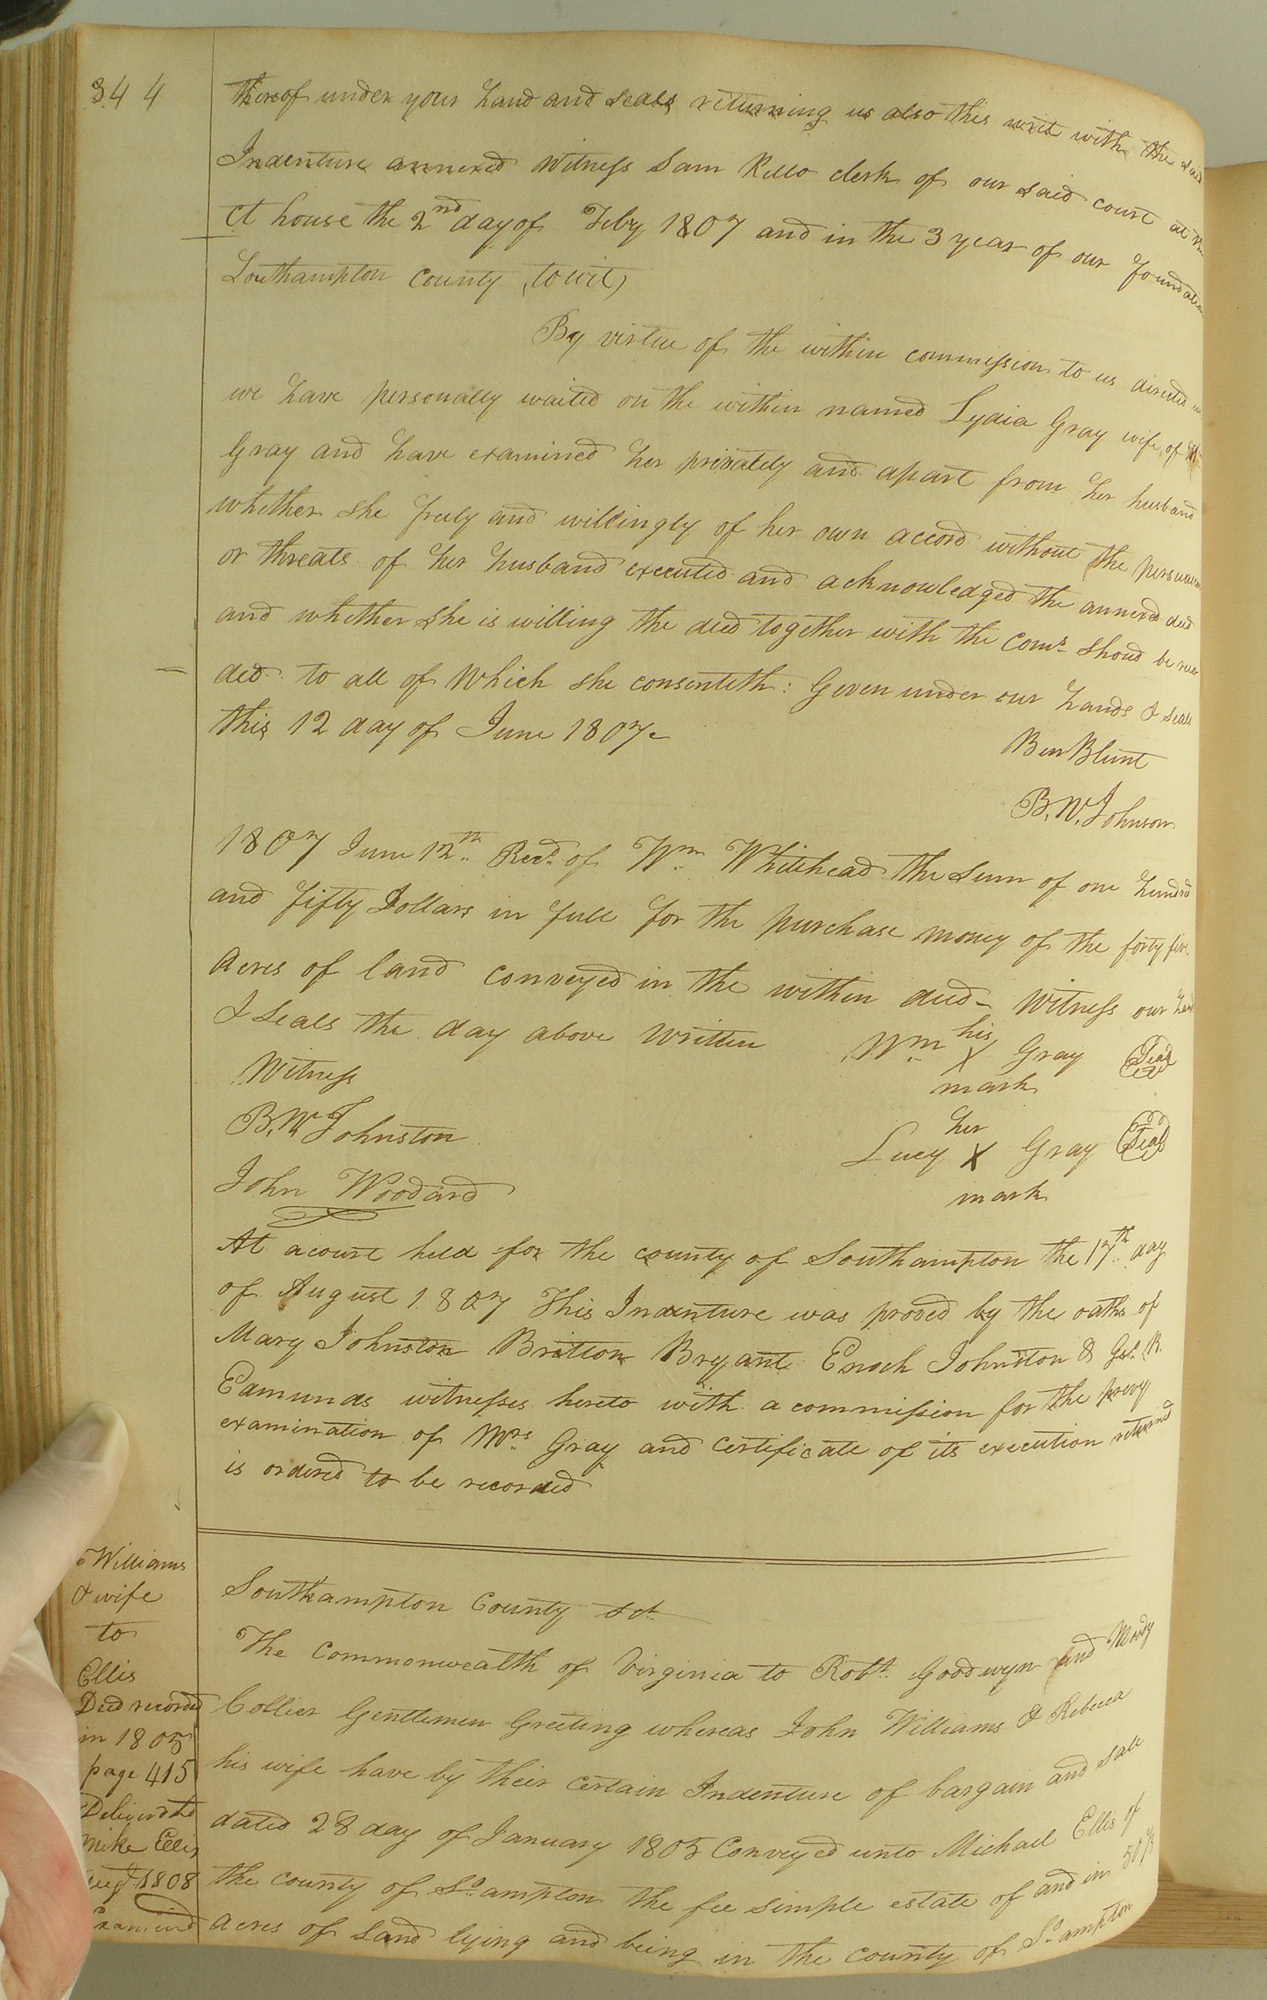 344
thereof under your hand and seals returning us also this writ with the said
Indenture annexed Witness Sam Kello clerk of our said court at the
Ct house the 2nd day of Feby 1807 and in the 3 year of our foundation
Southampton County (towit)
By virtue of the within commission to us directed
we have personally waited on the within named Lydia Gray wife of Wm
Gray and have examined her privately and apart from her husband
whether she freely and willingly of her own accord without the
or threats of her husband executed and acknowledged the annexed deed
and whether she is willing the deed together with the Coms. shoud be
ded to all of Which she consenteth: Given under our hands & seals
this 12 day of June 1807
Ben Blunt
B. W. Johnson
1807 June 12th Recd. of Wm Whitehead the sum of one hundrd
and fifty Dollars in full for the purchase money of the forty five
Acres of land conveyed in the within deed - Witness our
& seals the day above written
Wm his X mark Gray Seal
Witness
B. W. Johnston
Lucy her X mark Gray Seal
John Woodard
At a court held for the county of Southampton the 17th day
of August 1807 This Indenture was proved by the oaths of
Mary Johnston Britton Bryant Enoch Johnston & B.
Edmunds witnesses hereto with a commission for the privy
examination of Mrs Gray and certificate of its execution returnd
is ordered to be recorded
Williams
& wife
to
Ellis
Deed recorded
in 1805
page 415
Deliverd to
Mike Ellis
Augt 1808
Examined
Southampton County Sct
The Commonwealth of Virginia to Robt. Goodwyn and Moody
Collier Gentlemen Greeting whereas John Williams & Rebecca
his wife have by their certain Indenture of bargain and sale
dated 28 day of January 1805 Conveyed unto Michael Ellis of
the county of So.ampton the fee simple estate of and in 50½
Acres of Land lying and being in the county of So.ampton